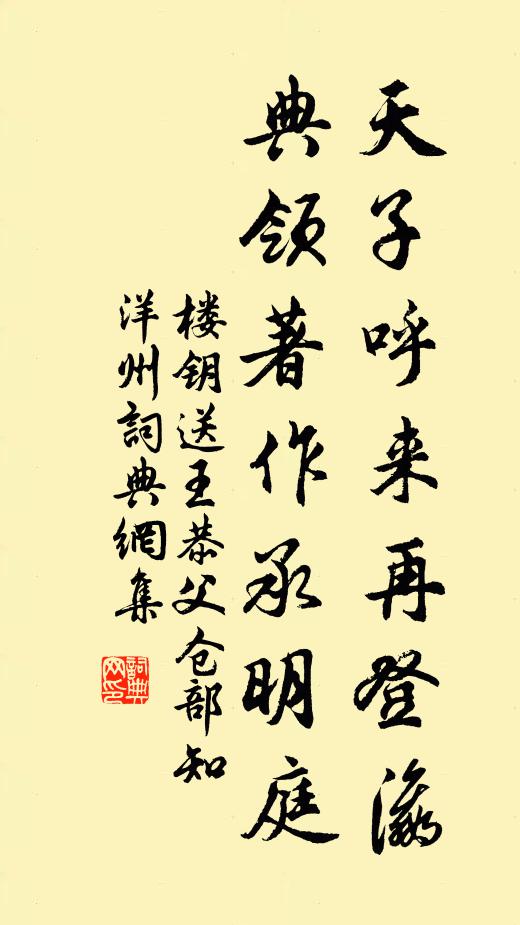 天子呼来再登瀛
典领著作承明庭
楼钥送王恭父仓部知
洋州詞典網集
詞典
网印